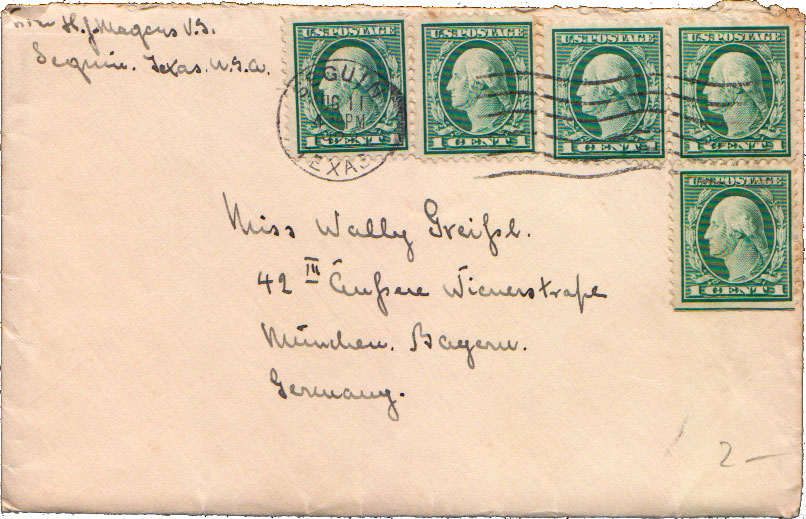 H. J. Magers V.S.
Seguin. Texas. U.S.A.
U.S. POSTAGE
1 CENT 1
U.S. POSTAGE
1 CENT 1
U.S. POSTAGE
1 CENT 1
U.S. POSTAGE
1 CENT 1
U.S. POSTAGE
1 CENT 1
SEGUIN
11
PM
TEXAS
Miss Wally Greißl.
42 III Äußere Wienerstraße
München. Bayern.
Germany.
2 —